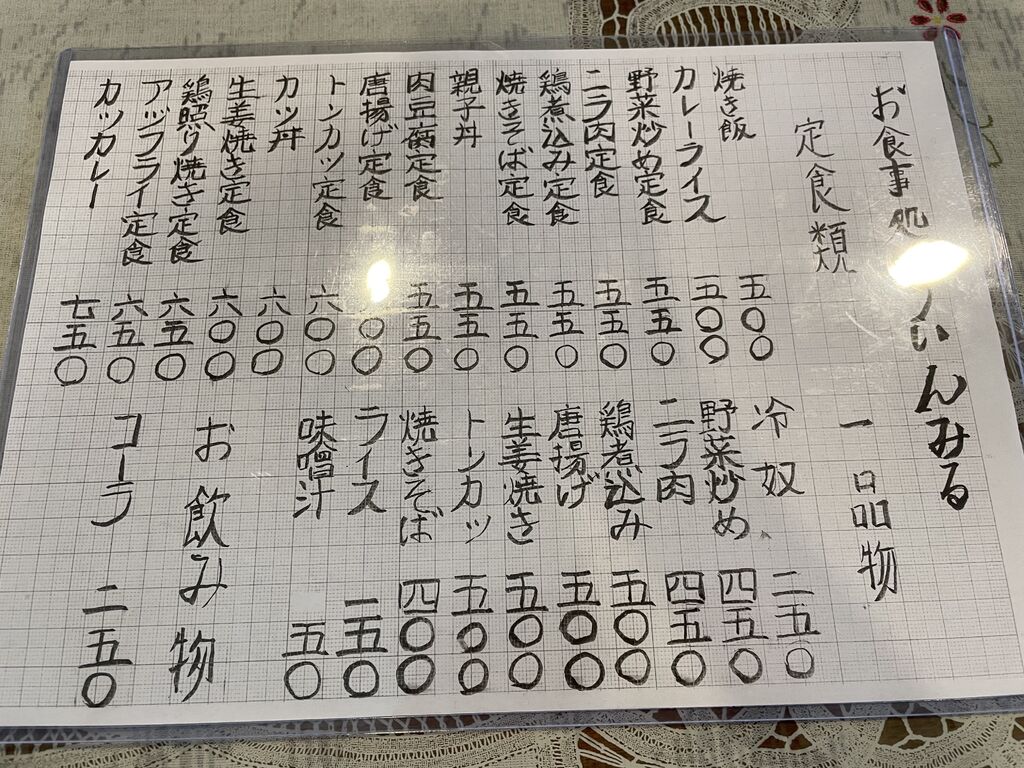 お食事処 いんみる
定食類
焼き飯 五〇〇
カレーライス 五〇〇
野菜炒め定食 五五〇
ニラ肉定食 五五〇
鶏煮込み定食 五五〇
焼きそば定食 五五〇
親子丼 五五〇
肉豆腐定食 五五〇
唐揚げ定食 六〇〇
トンカツ定食 六〇〇
カツ丼 六〇〇
生姜焼き定食 六〇〇
鶏照り焼き定食 六五〇
アジフライ定食 六五〇
カツカレー 七五〇
一品物
冷奴 二五〇
野菜炒め 四五〇
ニラ肉 四五〇
鶏煮込み 五〇〇
唐揚げ 五〇〇
生姜焼き 五〇〇
トンカツ 五〇〇
焼きそば 四〇〇
ライス 一五〇
味噌汁 五〇
お飲み物
コーラ 二五〇